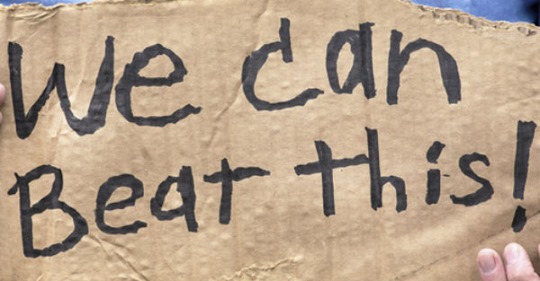 We can
Beat this!